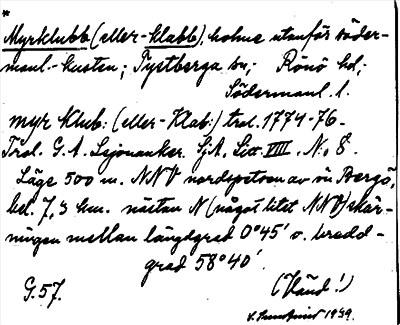 *
Myrklubb (eller -klabb), holme utanför söder-
manl.-kusten; Tystberga sn; Rönö hd;
Södermanl. l.
myr klub: (eller - Klab:) trol. 1774-76.
Trol. G. A. Sjömanker. SjA, Litt. VIII, N:o 8.
Läge 500 m. NNV nordspetsen av ön Bergö,
bel. 7,3 km. nästan N (något litet NNV) skär-
ningen mellan längdgrad 0°45' o. bredd-
grad 58°40'.
G. 57. (Vänd!)
1939.